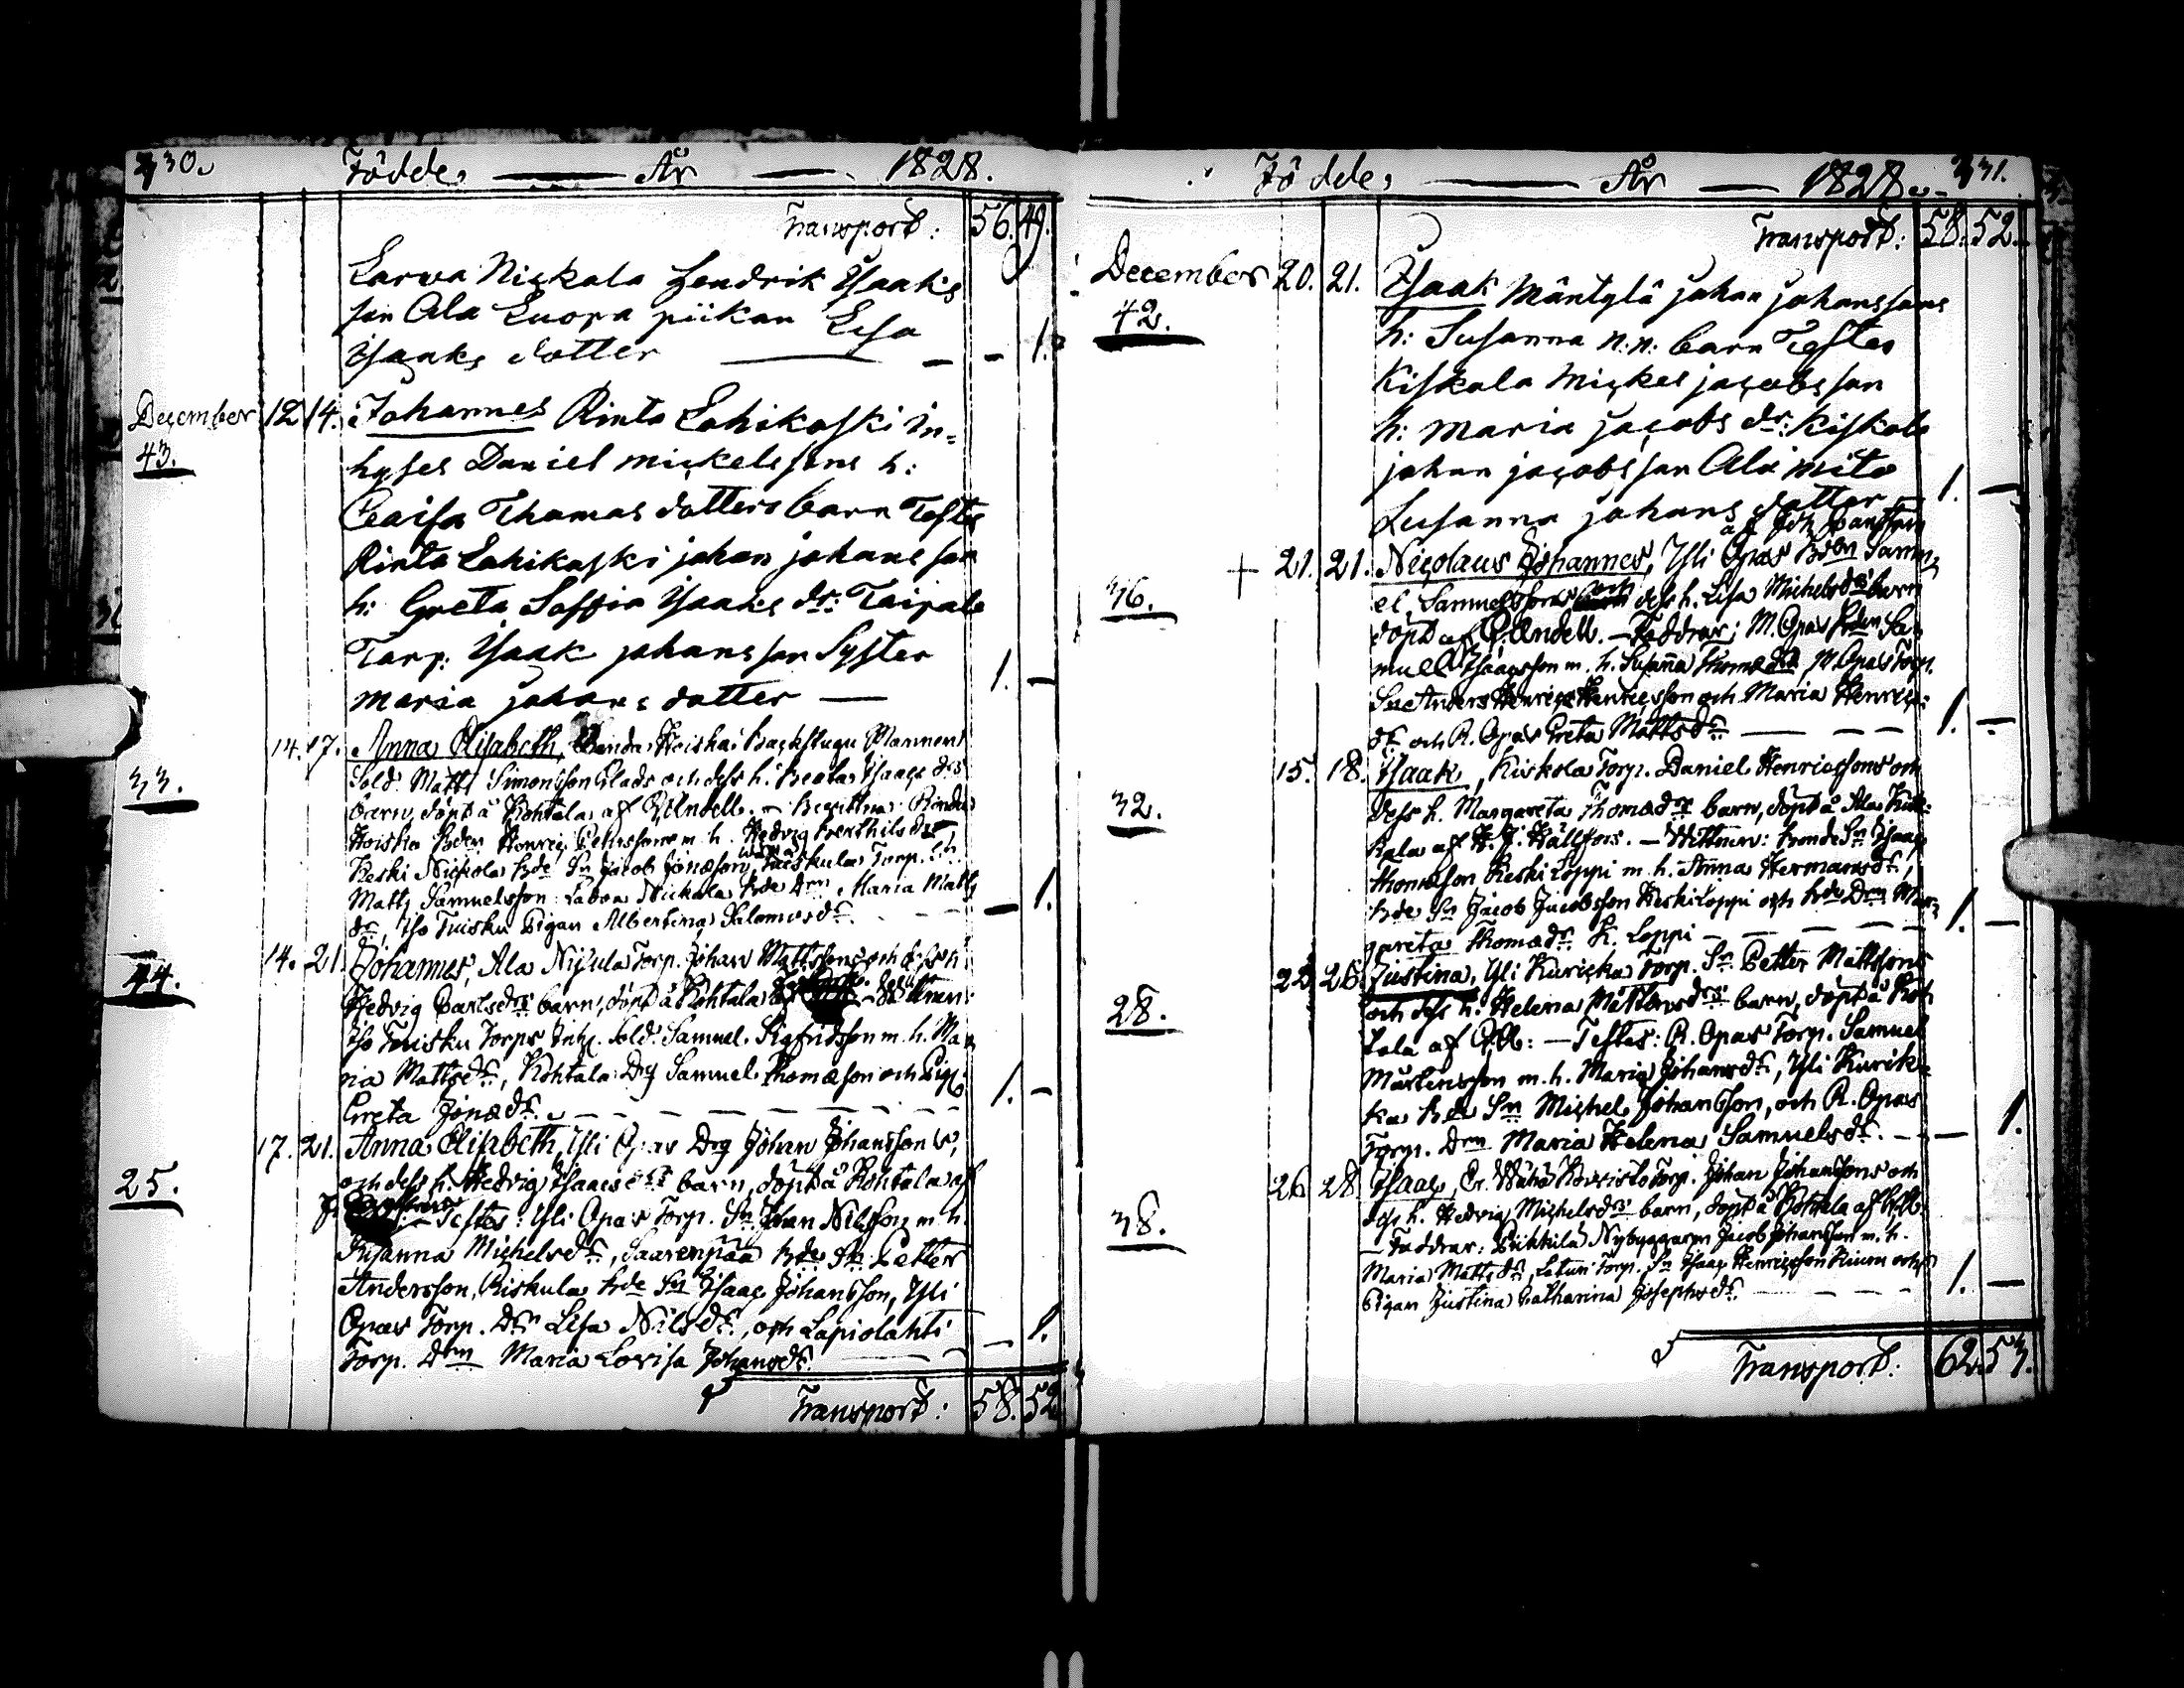 330. Födde, År 1828.
Transport: 56. 49.
Larva Nickala Hendrik Ysaaks
son Ala Luopa piikan Lisa
Ysaaks dotter — — 1.
December 12 14. Johannes Rinta Lahikoski in=
43. hyses Daniel Mickelssons h:
Caisa Thomas dotters barn Testes
Rinta Lahikoski johan johansson
h: Greta Soffia Ysaaks dr: Taipale
Torp: Ysaak johansson Syster
maria johans dotter — 1. —
14. 17. Anna Elisabeth, Heiska Backstugu Mannen
33. Sold. Matts Simonsson Glads och dess h. Beata Ysaacs drs
barn, döpt å Kohtala af Q. Andell. — Rinda
Hoiska Bden Henric Pehrssons m. h. Hedvig Berthils dr,
Keski Nickola Bde Sn Jacob Jonæson, Torp. Sn
Matts Samuelsson Larva Nickola Bde Drn Maria Matts — 1.
dr, Iso Tuisku Pigan Albertina Salomos dr. — —
14. 21. Johannes, Ala Nicula Torp. Johan Mattssons och dess h.
44. Hedvig Carls drs barn, döpt å Kohtala
Iso Tuisku Torps Inh. Sold. Samuel Sigfridsson m. h. Ma=
ria Matts dr, Kohtala Drg Samuel Thomæson och Pig.
Greta Jonæ dr. — — — — — 1. —
17. 21. Anna Elisabeth, Yli Opas Drg Johan Johanssons,
25. och dess h. Hedvig Ysaacs drs barn, döpt å Kohtala af
Testes: Yli Opas Torp. Sn Johan Nilsson m. h.
Susanna Michels dr, Saarenpää Bde Sn Petter
Andersson, Kiskula Bde Sn Ysaac Johansson, Yli
Opas Torp. Dr Lisa Nils dr, och Lapiolahti — 1.
Torp. Drn Maria Lovisa Johans dr.
Transport: 58. 52
Födde, År 1828. 331.
Transport: 58. 52.
December 20. 21. Ysaak Mäntylä johan johanssons
42. h: Susanna n.n: barn Testes
Kiskala Mickel jacobsson
h: Maria jacobs dr: Kiskala
johan jacobsson Ala Mito
Susanna johans dotter — 1. —
af Joh.
+ 21. 21. Nicolaus Johannes, Yli Opas Bden Samu=
36. el Samuelssons och dess h. Lisa Michels drs barn
döpt af Q. Andell. — Faddrar: M. Opas Bden Sa=
muel Ysaacsson m. h. Susanna Thomæ dr, M. Opas Torp.
Sn Anders Henricsson och Maria Henrics=
dr och R. Opas Greta Matts dr — — — 1. —
15. 18. Ysaak, Kiskola Torp. Daniel Henricssons och
32. dess h. Margareta Thomæ drs barn, döpt å Ala
kala af H. J. Hällfors. — Vittnen: Bonde Sn Ysaac
Thomæson Keski Loppi m. h. Anna Hermans dr,
Bde Sn Jacob Jacobsson Keski Loppi och Bde Drn Mar=
gareta Thomæ dr. K. Loppi — — — 1. —
22. 26. Justina, Yli Kuricka Torp. Sn Petter Mattssons
28. och dess h. Helena Mårtens drs barn, döpt å Koh
tala af Q. A: — Testes: R. Opas Torp. Samuel
Mårtensson m. h. Maria Johans dr, Yli Kurik=
ka Bde Sn Michel Johansson, och R. Opas
Torp. Drn Maria Helena Samuels dr. — — 1.
26 28. Ysaac, Torp. Johan Johanssons och
38. dess h. Hedvig Michels drs barn, döpt å Kohtala af
— Faddrar: Pukkila Nybyggaren Jacob Johansson m. h.
Maria Matts dr, Torp. Sn Ysaac Henricsson och
Pigan Justina Catharina Josephs dr. — — — 1. —
Transport: 62. 53.